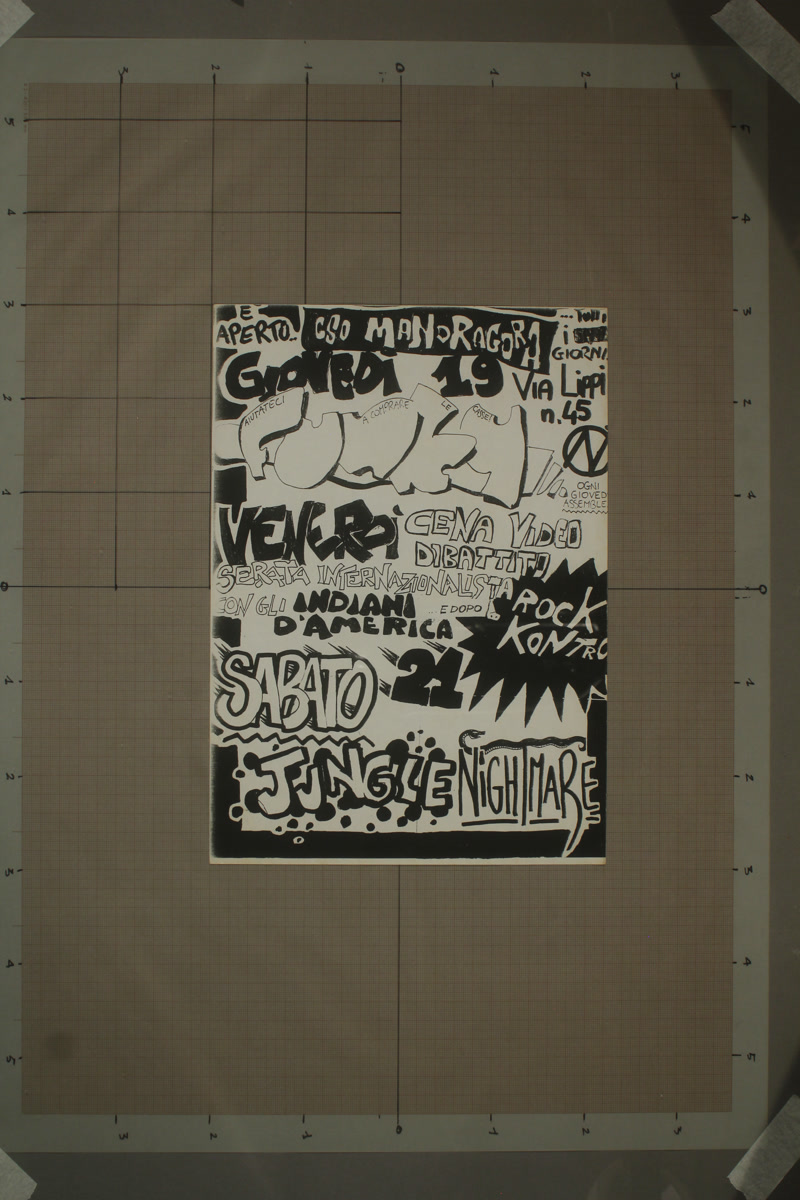 È
APERTO..
CSO MANDRAGORA
... TUTTI
i
GIORNI
GIOVEDÌ 19
VIA Lippi
n.45
AIUTATECI A COMPRARE LE CASSE!
FUNKY
OGNI
GIOVED
ASSEMBLE
VENERDÌ
CENA VIDEO
DIBATTITO
SERATA INTERNAZIONALISTA
CON GLI INDIANI
D'AMERICA
.. E DOPO
ROCK
KONTRO
SABATO 21
JUNGLE NIGHTMARE